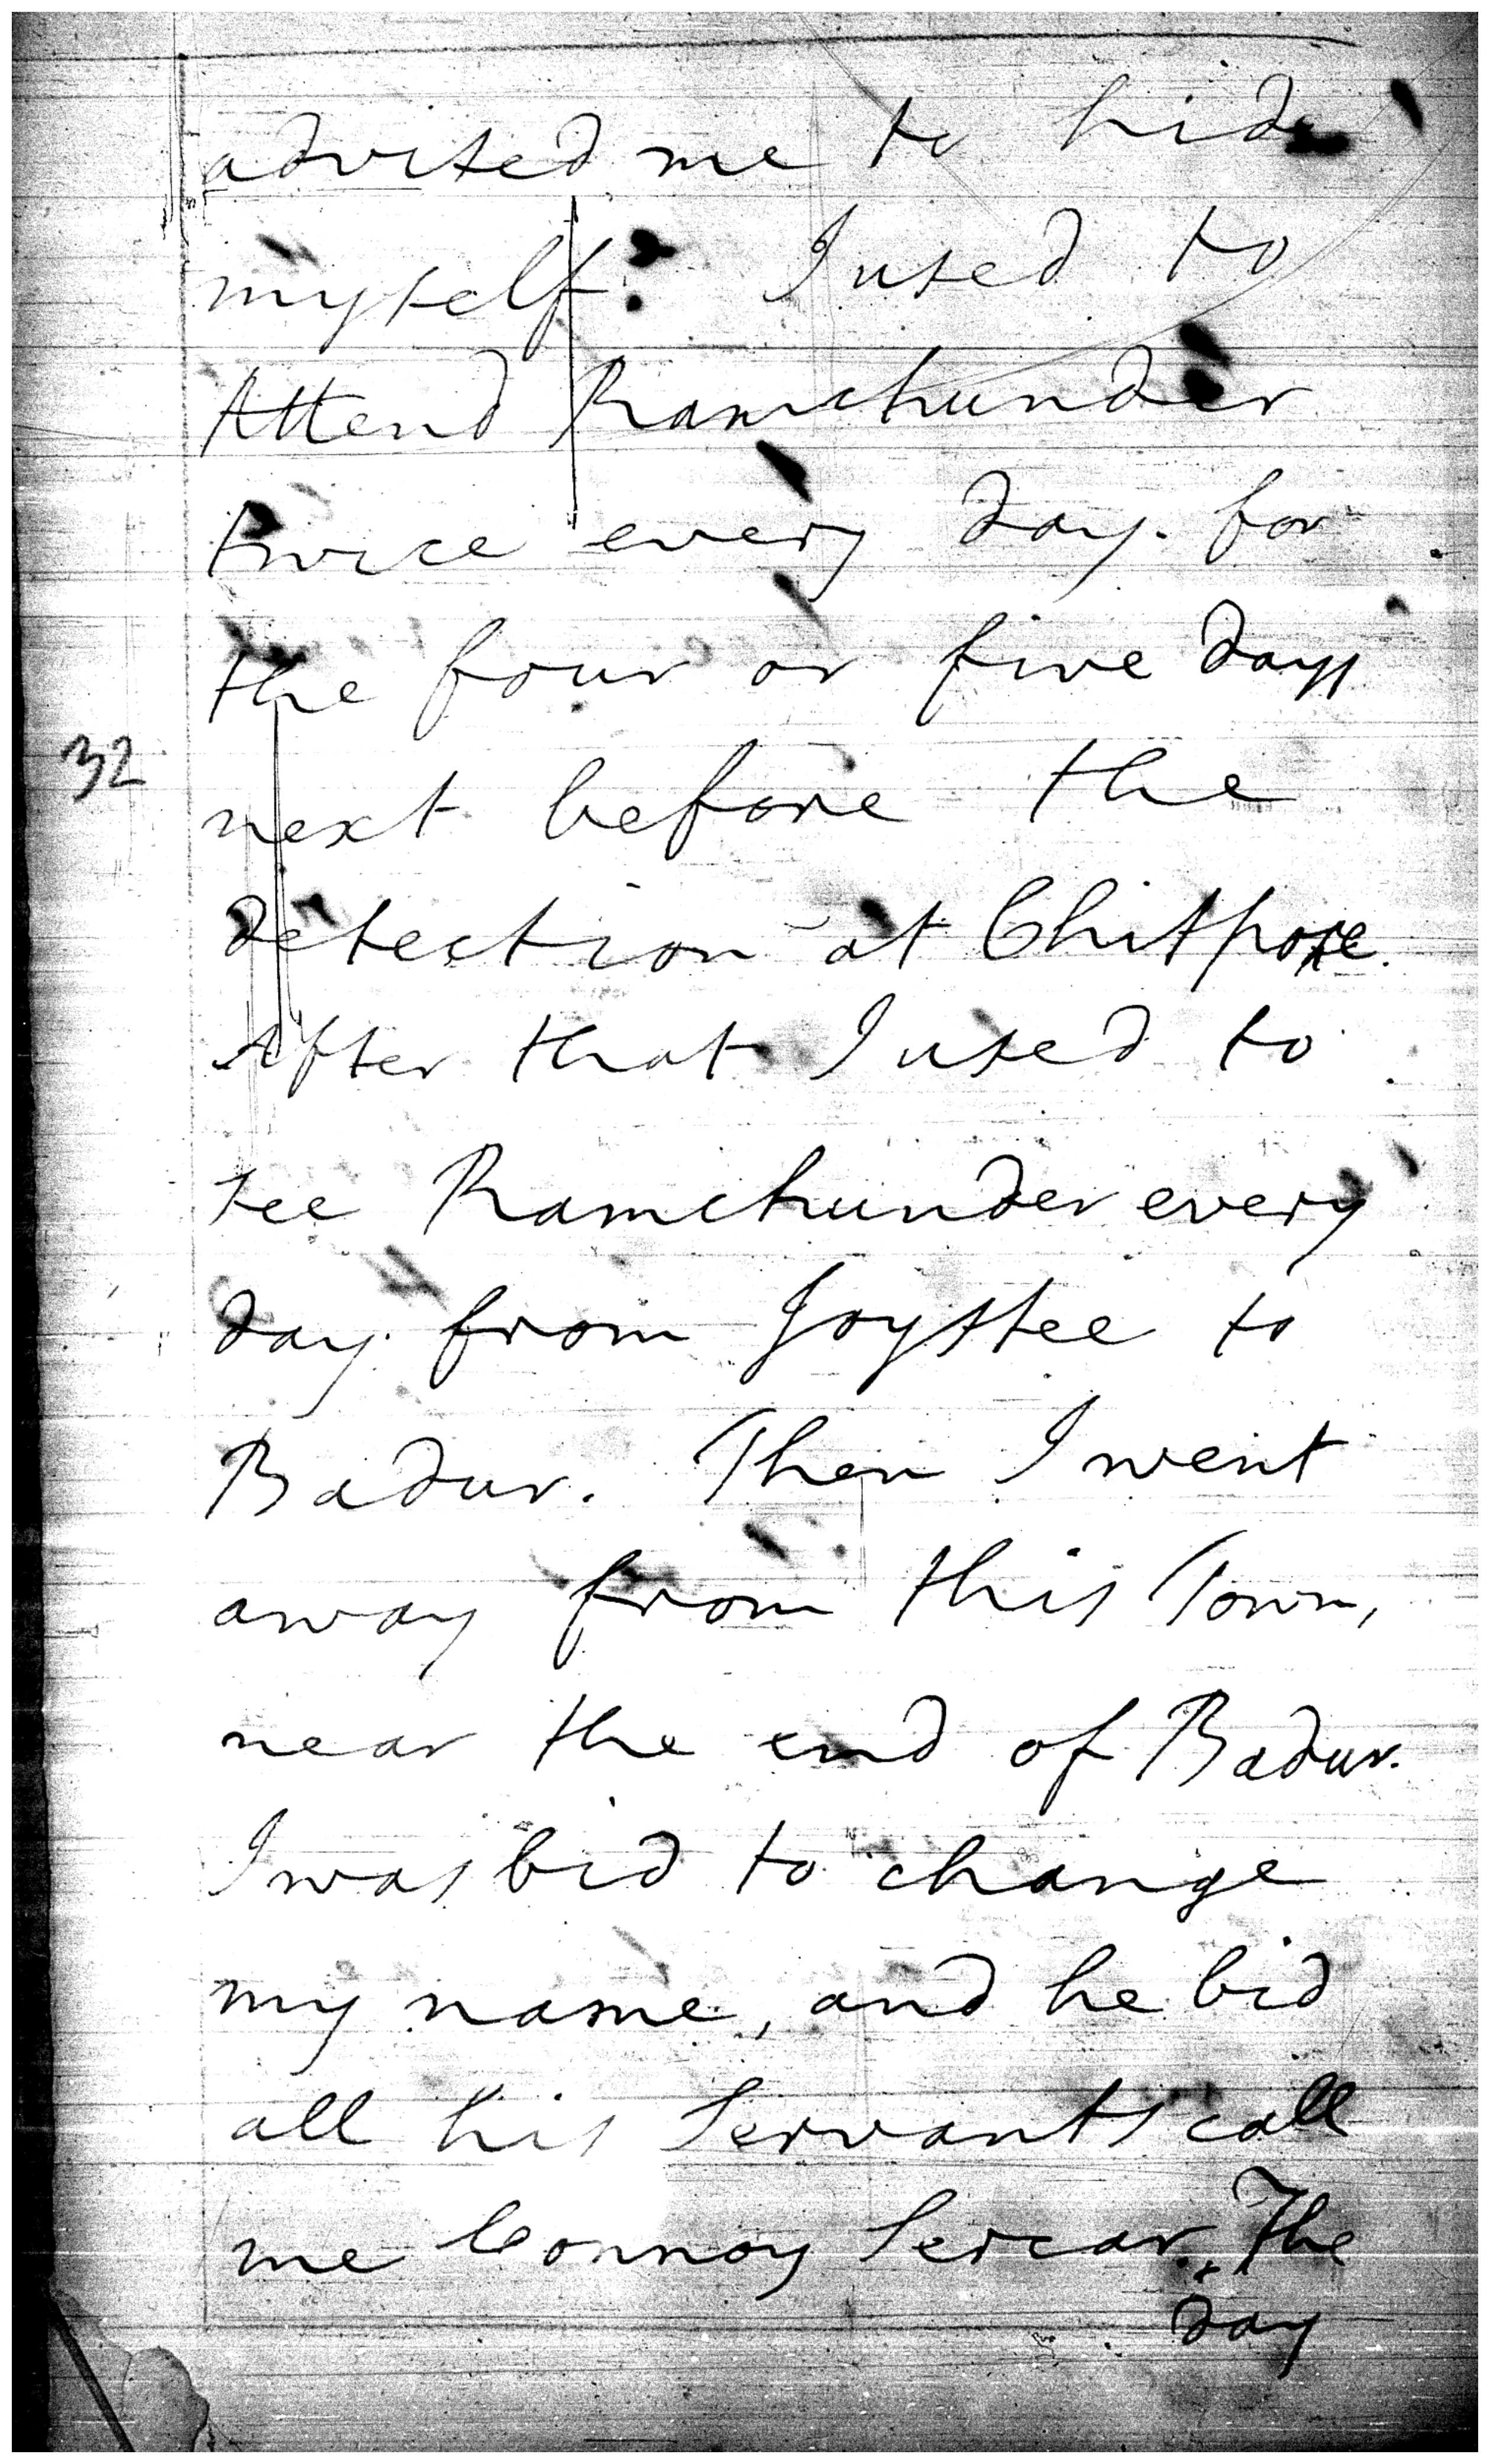 advised me to hide
myself. I used to
Attend Ramchunder
twice every day. for
the four or five days
32
next before the
detection at Chitpore.
After that I used to
see Ramchunder every
day from Joystee to
Badur. Then I went
away from this Town,
near the end of Badur.
I was bid to change
my name, and he bid
all his Servants call
me Connoy Sercar. The
day